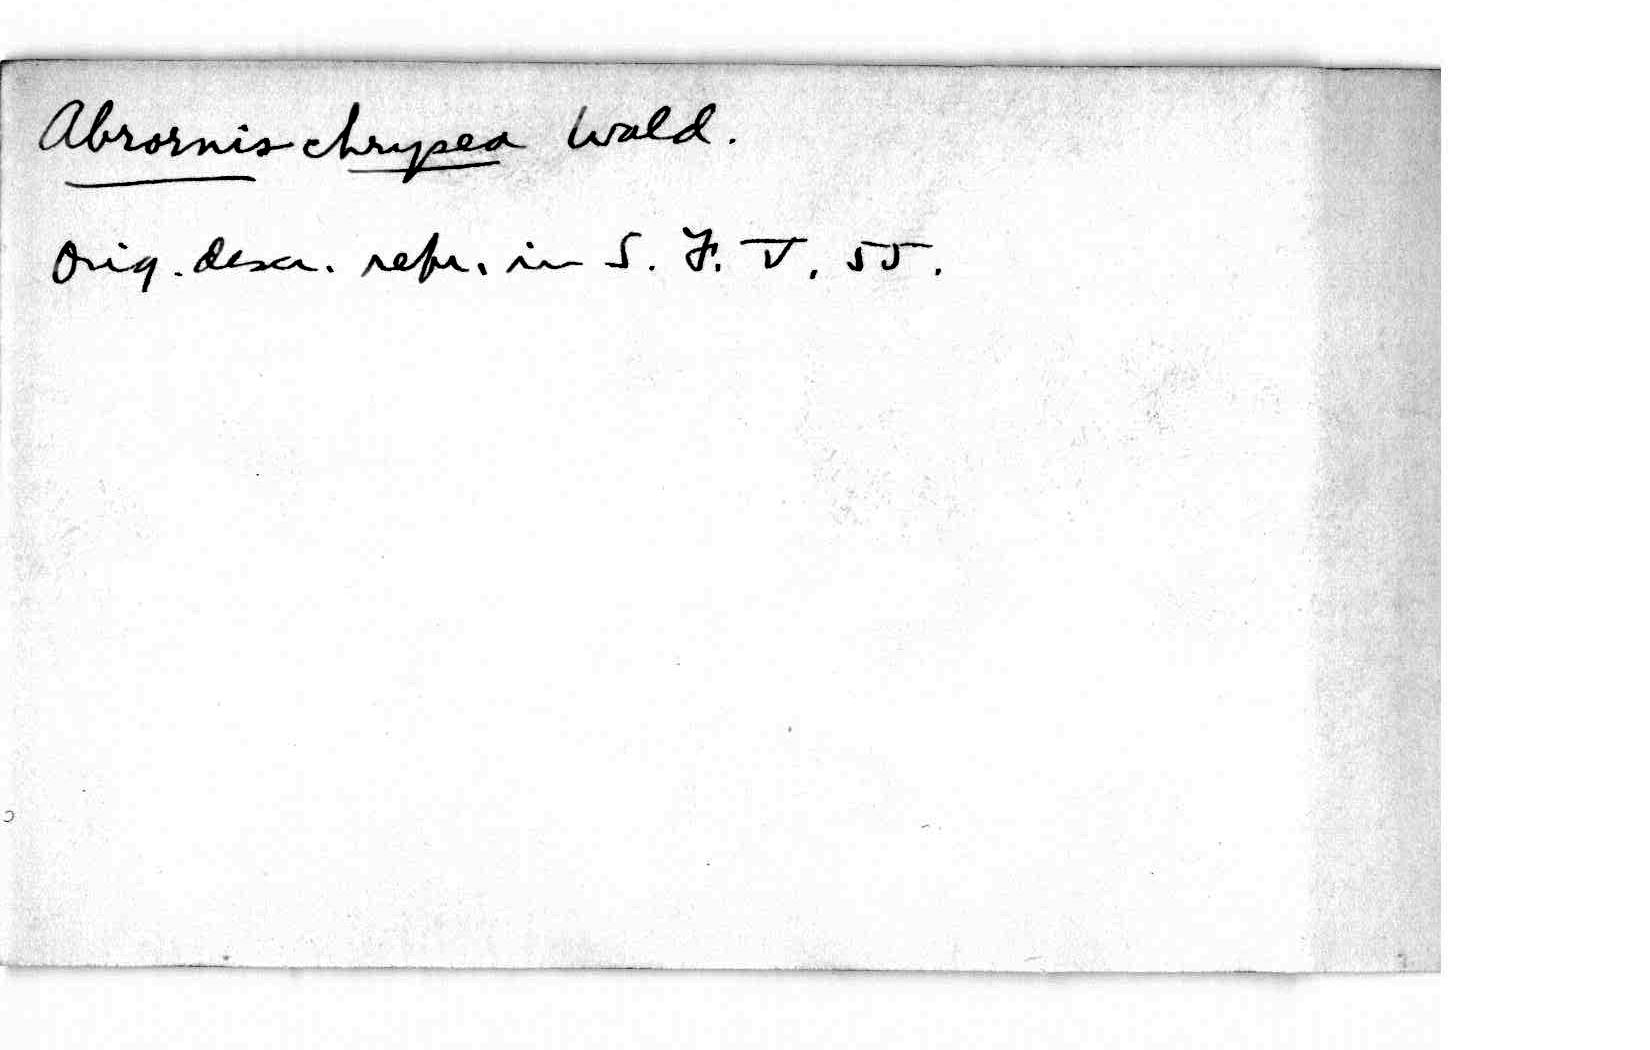 Abrornis chrysea Wald.
Orig. descr. repr. in S. F. V, 55.